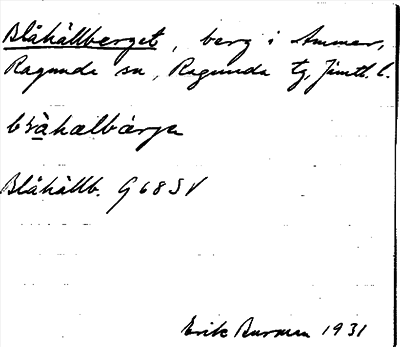 Blåhällberget, berg i Ammer,
Ragunda sn, Ragunda tg, Jämtl. l.
blåhælbärje
Blåhällb. G 68 SV
Erik Burman 1931